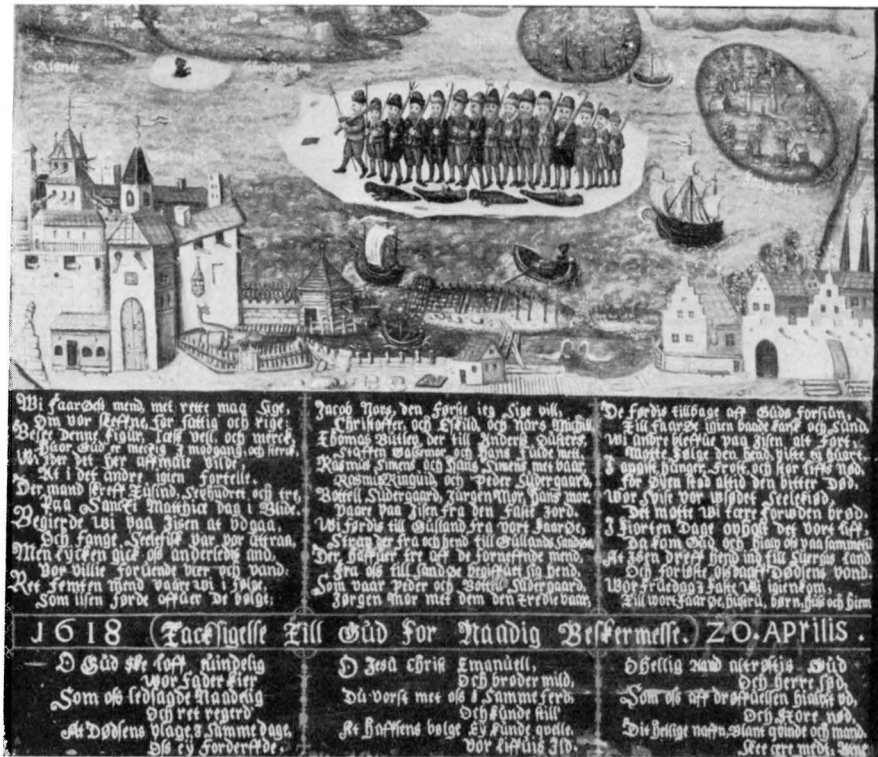 Wi faarØck mend met rette maa Sige,
Om vor skeffne, for fattig och rige;
Besee denne figur, Læss vell, och merck,
Huor Gud er mectig I modgang och sterck,
Wi der det her affmale vilde,
At i det andre igien fortelle.
Der mand skreff Tusind, Sexhudret, och tre,
Paa Sancti Matthiæ dag i Blide.
Begierde wi paa Jisen at Udgaa,
Och fange Seelefisk var vor attraa,
Men lycken gick oss anderledis and,
Vor villie foruende veer och vand.
Ret femten mend vaare wi i følge,
Som iisen førde offuer De bølge;
Jacob Nors, den Første ieg Sige vill,
Christoffer, och Eskild, och Nars Michill,
Thomas Butley, der till Anders Dusters,
Staffen Vallemor, och Hans fulde mett.
Rasmus Simens, och Hans Simens met vaar,
Rasmus Ringuid, och Peder Sudergaard,
Bottell Sudergaard, Jurgen Mor, Hans mor,
Vaare paa Jisen fra den Faste Jord.
Wi førdis till Gulland fra vort faarøe,
Strax der fra och hend till Gullands Sandøe.
Der haffuer tre aff de forneffnde mend,
Fra oss till Sandøe begiffuet sig hend.
Som vaar Peder och Bottell Sudergaard,
Jørgen Mor met dem den tredie vaar,
De Førdis tillbage aff Guds forsiun,
Till FaarØe igien baade karsk och Sund,
Wi andre bleffue paa Jisen alt fort,
Motte følge den hend, viste ey huort.
I angist, hunger, Frost, och stor liffs nød,
For Øyen stod altid den bitter Død,
Wor Spise vor usødet Seelekiød,
Det motte wi tære foruden brød.
I fiorten Dage opholt det vort liff,
Da kom Gud och hialp oss paa sammetid
At Isen dreff hend ind till Suergis land
Och forløste oss aff Dødsens vond.
Wor fruedag i faste Wi igienkom,
Till wort faarøe, hustru, børn, hus och hiem
1618 (Tacksigelse Till Gud For Naadig Beskermelse.) 20. APRILIS.
O Gud ske loff,
Wor fader kier
Som oss ledsagde Naadelig
Och ret regerd
At Dødsens plage, I samme dage,
Oss ey forderffde.
O Jesu Christ Emanuell,
Och brøder mild,
Du vorst met oss I samme ferd,
Och kunde still
At haffsens bølge Ey kunde quelle
Vor liffuis Ild.
O hellig Aand altrøstis Gud
Och herre sød,
Som oss aff drøffuelsen hialpt ud,
Och store nød,
Dit hellige naffn, blant quinde och mand,
Skee ære medt, Amen